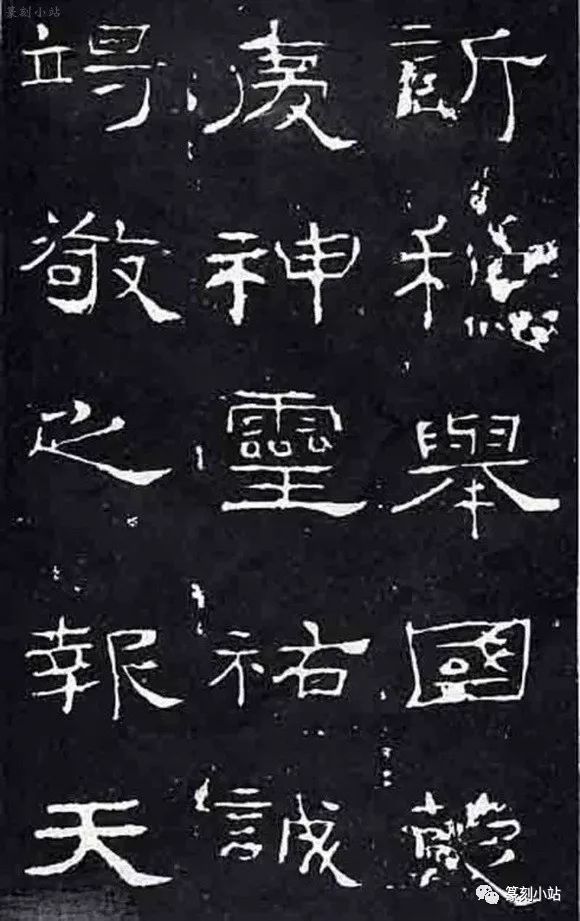 篆刻小站
訢和舉國蒙
慶神靈祐誠
竭敬之報天
篆刻小站